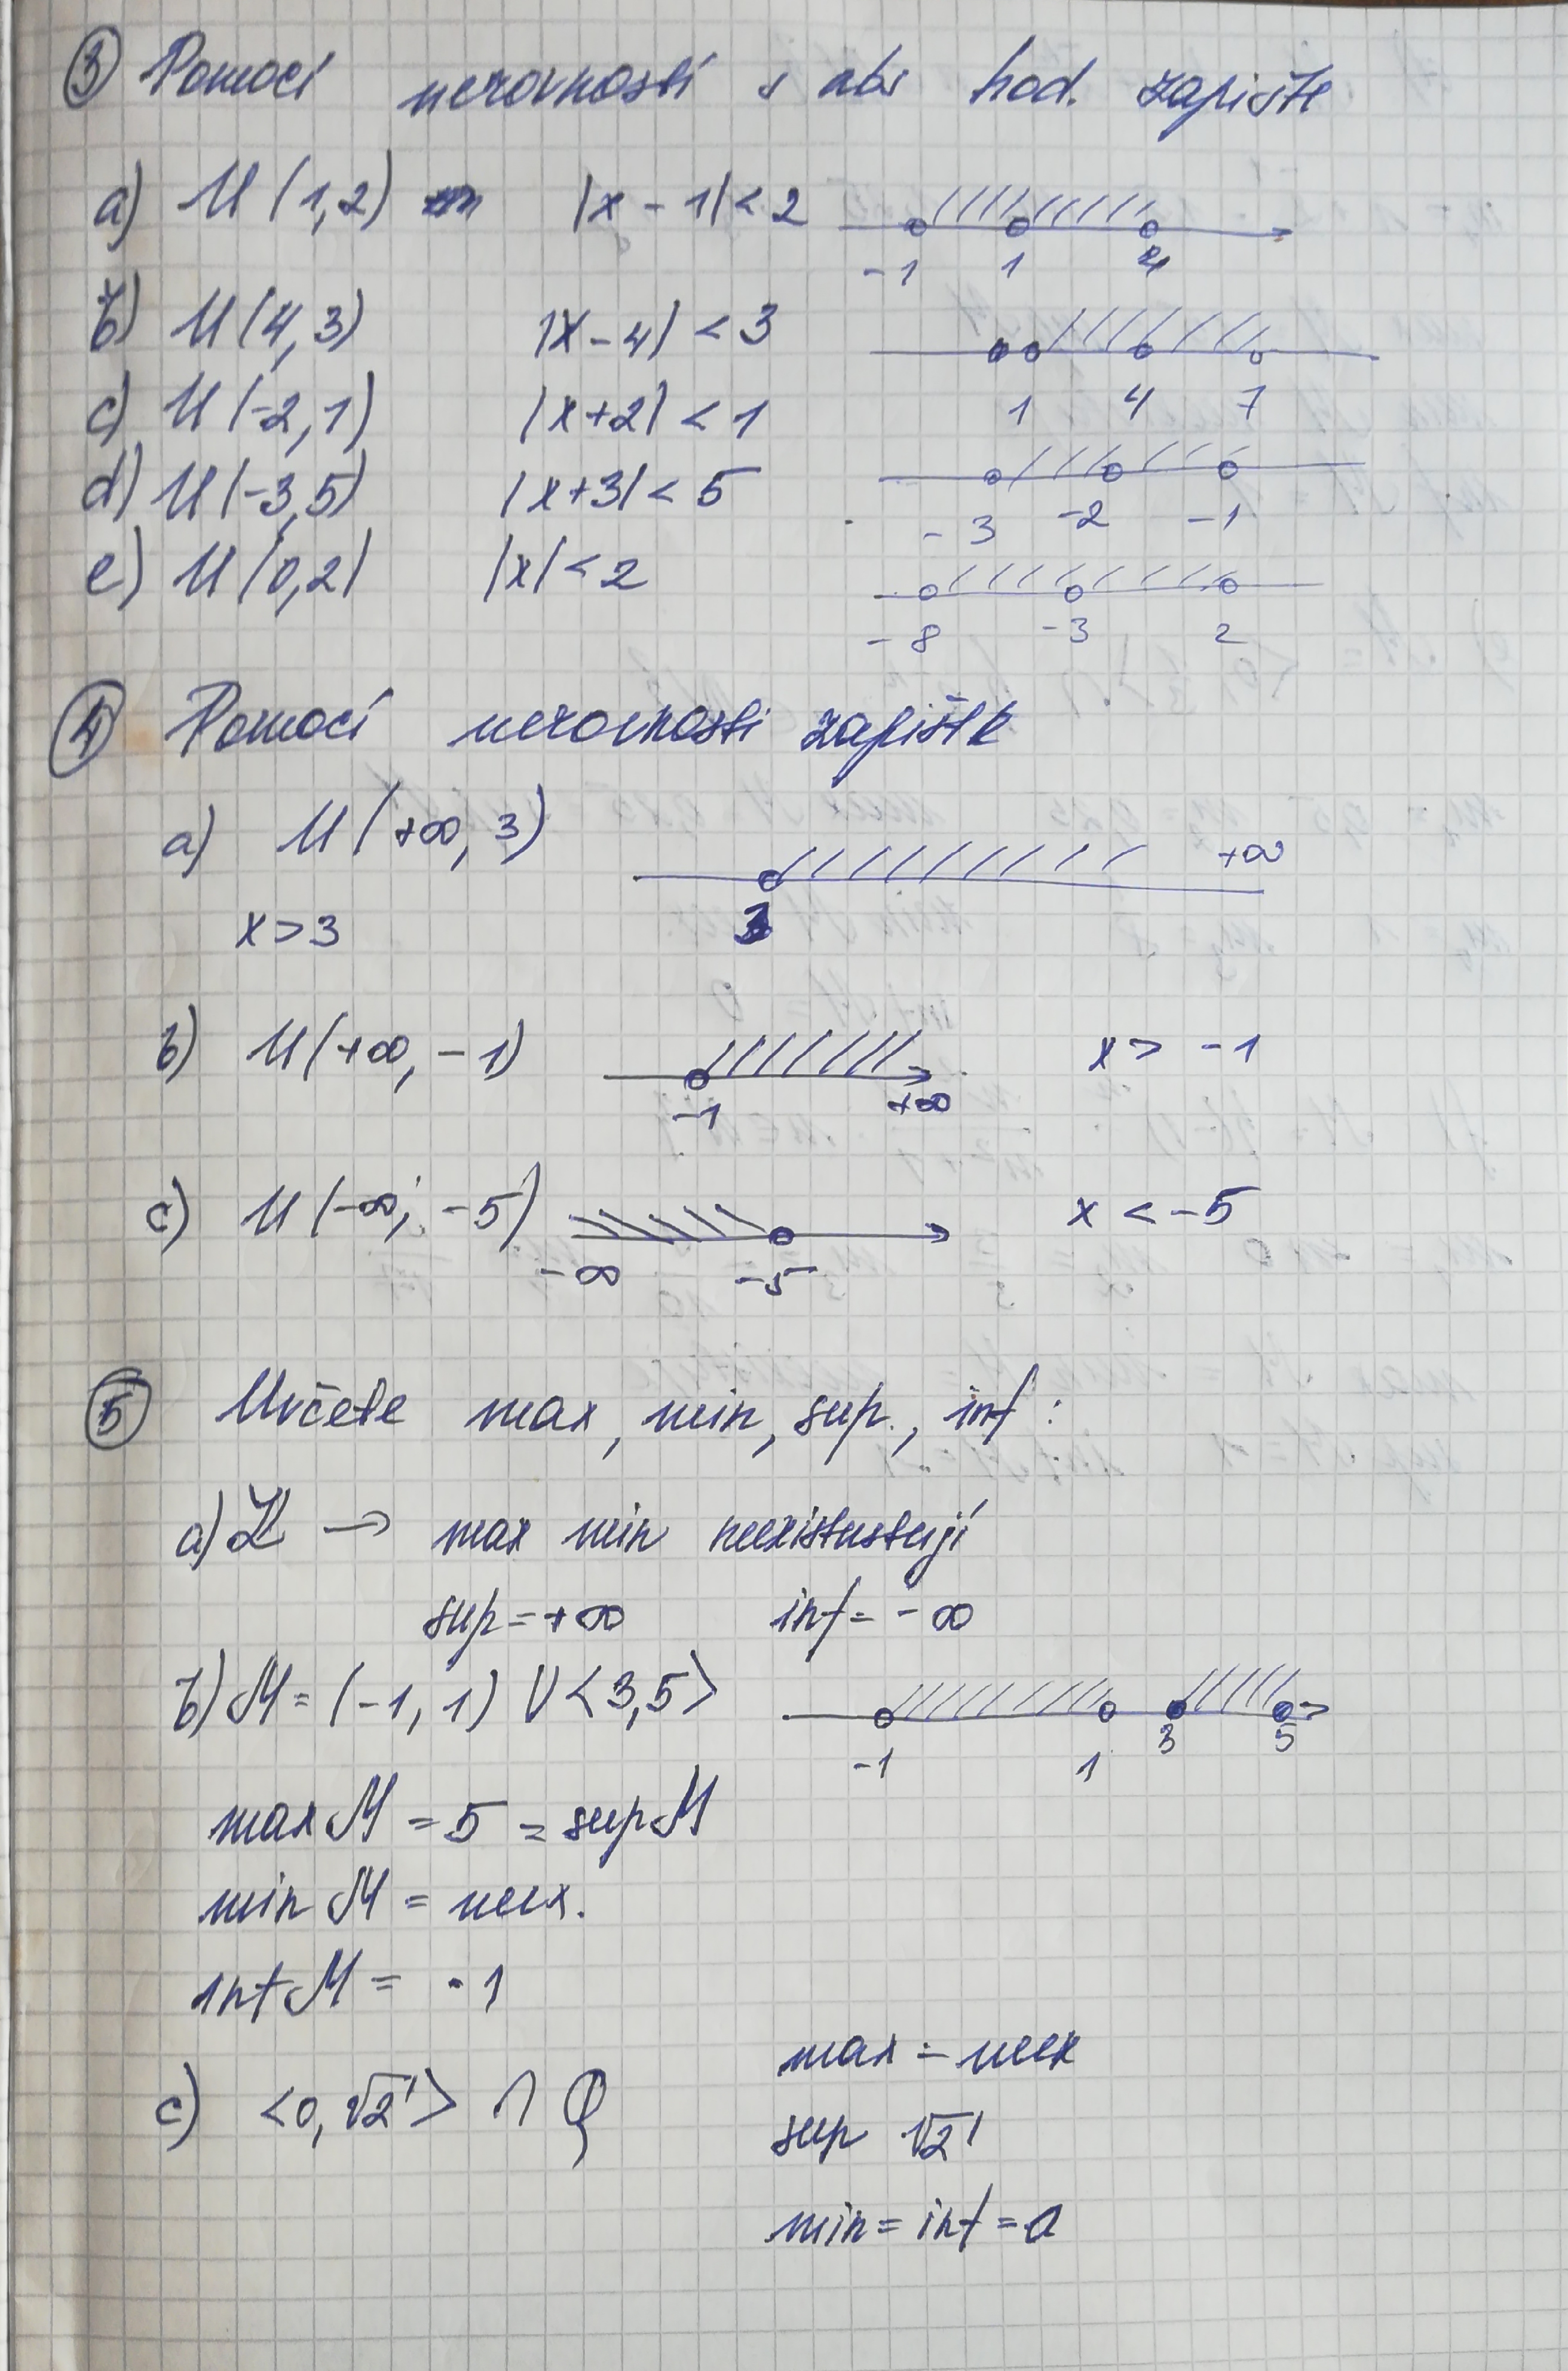 ③ Pomocí nerovností s abs hod. zapište
a) U(1,2) |x-1|<2 -1 1
b) U(4,3) |x-4|<3 1 4 7
c) U(-2,1) |x+2|<1
d) U(-3,5) |x+3|<5 -3 -2 -1
e) U(0,2) |x|<2 -8 -3 2
④ Pomocí nerovnosti zapište
a) U(+∞,3) +∞
x>3 3
b) U(+∞,-1) -1 +∞ x>-1
c) U(-∞;-5) -∞ -5 x<-5
⑤ Určete max, min, sup., inf:
a) Z → max min neexistusteují
sup=+∞ inf=-∞
b) M=(-1,1)∪<3,5> -1 1 3 5
max M = 5 = sup M
min M = neex.
inf M = -1
c) <0,√2> ∩ Q max = neex
sup √2
min = inf = 0